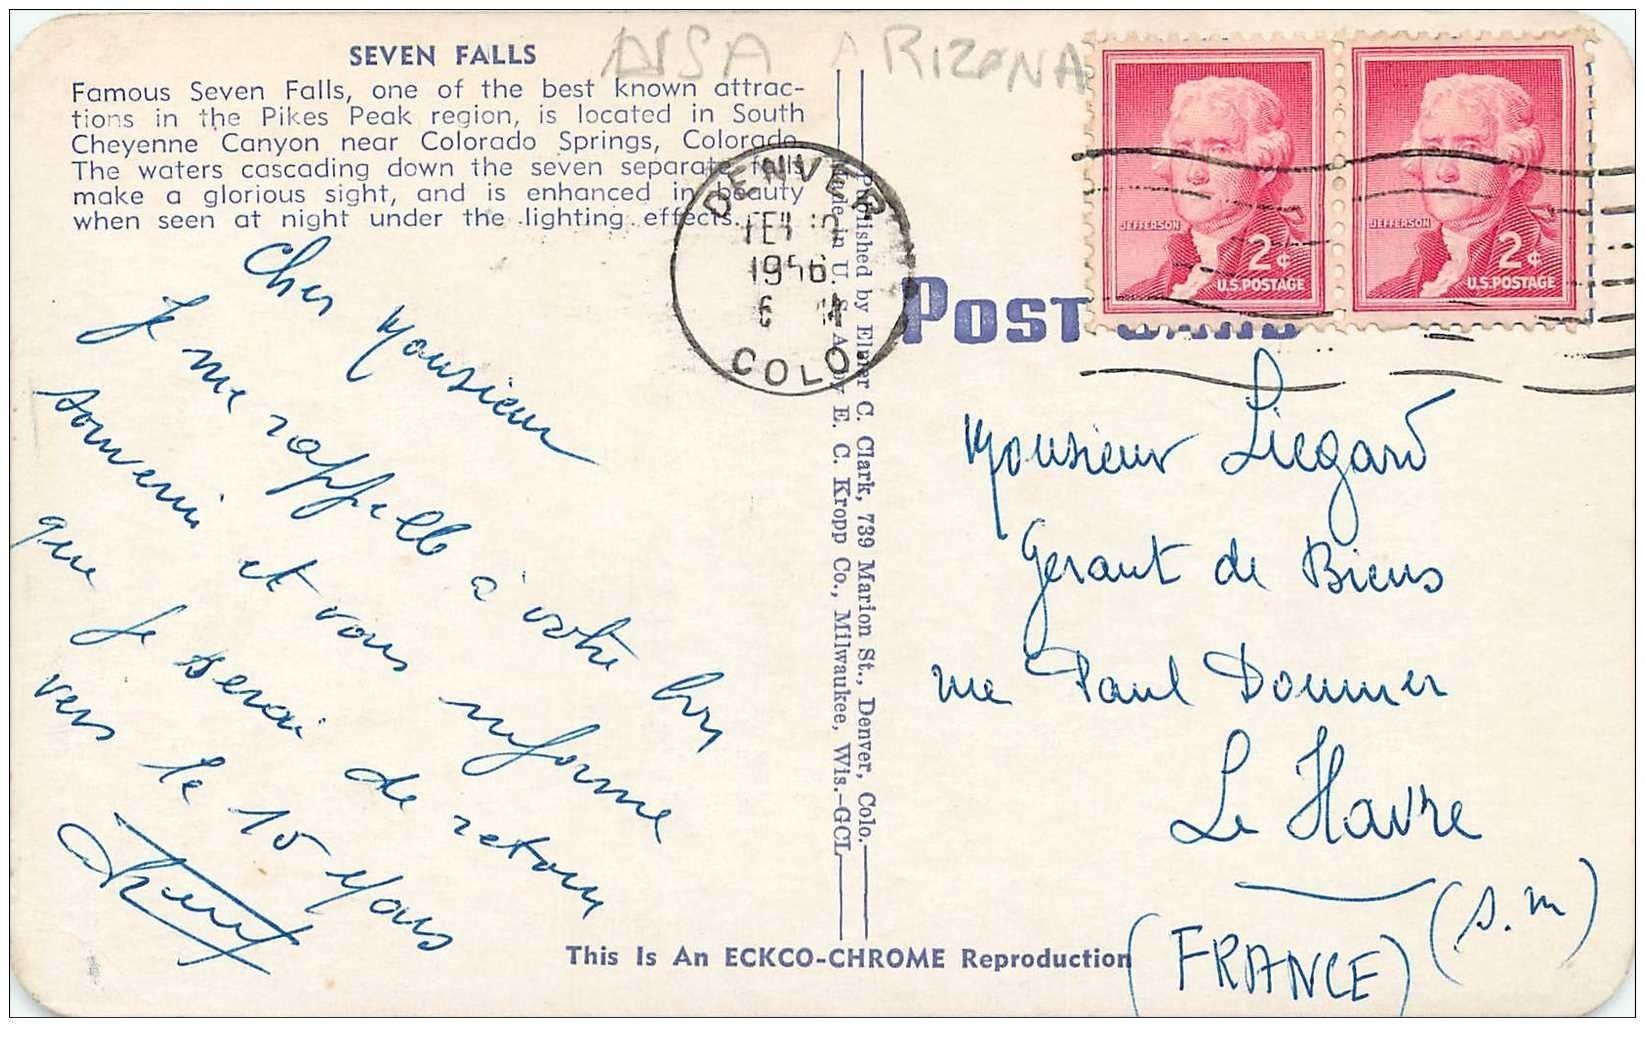 USA ARIZONA
SEVEN FALLS
Famous Seven Falls, one of the best known attrac-
tions in the Pikes Peak region, is located in South
Cheyenne Canyon near Colorado Springs, Colorado.
The waters cascading down the seven separate falls
make a glorious sight, and is enhanced in beauty
when seen at night under the lighting effects.
DENVER
1956
COLO
JEFFERSON
2¢
U.S. POSTAGE
JEFFERSON
2¢
U.S. POSTAGE
POST CARD
Cher Monsieur
Je me rappelle à votre bon
souvenir et vous informe
que je serai de retour
vers le 10 Mars
Published by Elmer C. Clark, 739 Marion St., Denver, Colo.
Made in U. S. A. by E. C. Kropp Co., Milwaukee, Wis.-GCL
Monsieur Liegard
Gerant de Biens
rue Paul Doumer
Le Havre
(S.M)
(FRANCE)
This Is An ECKCO-CHROME Reproduction